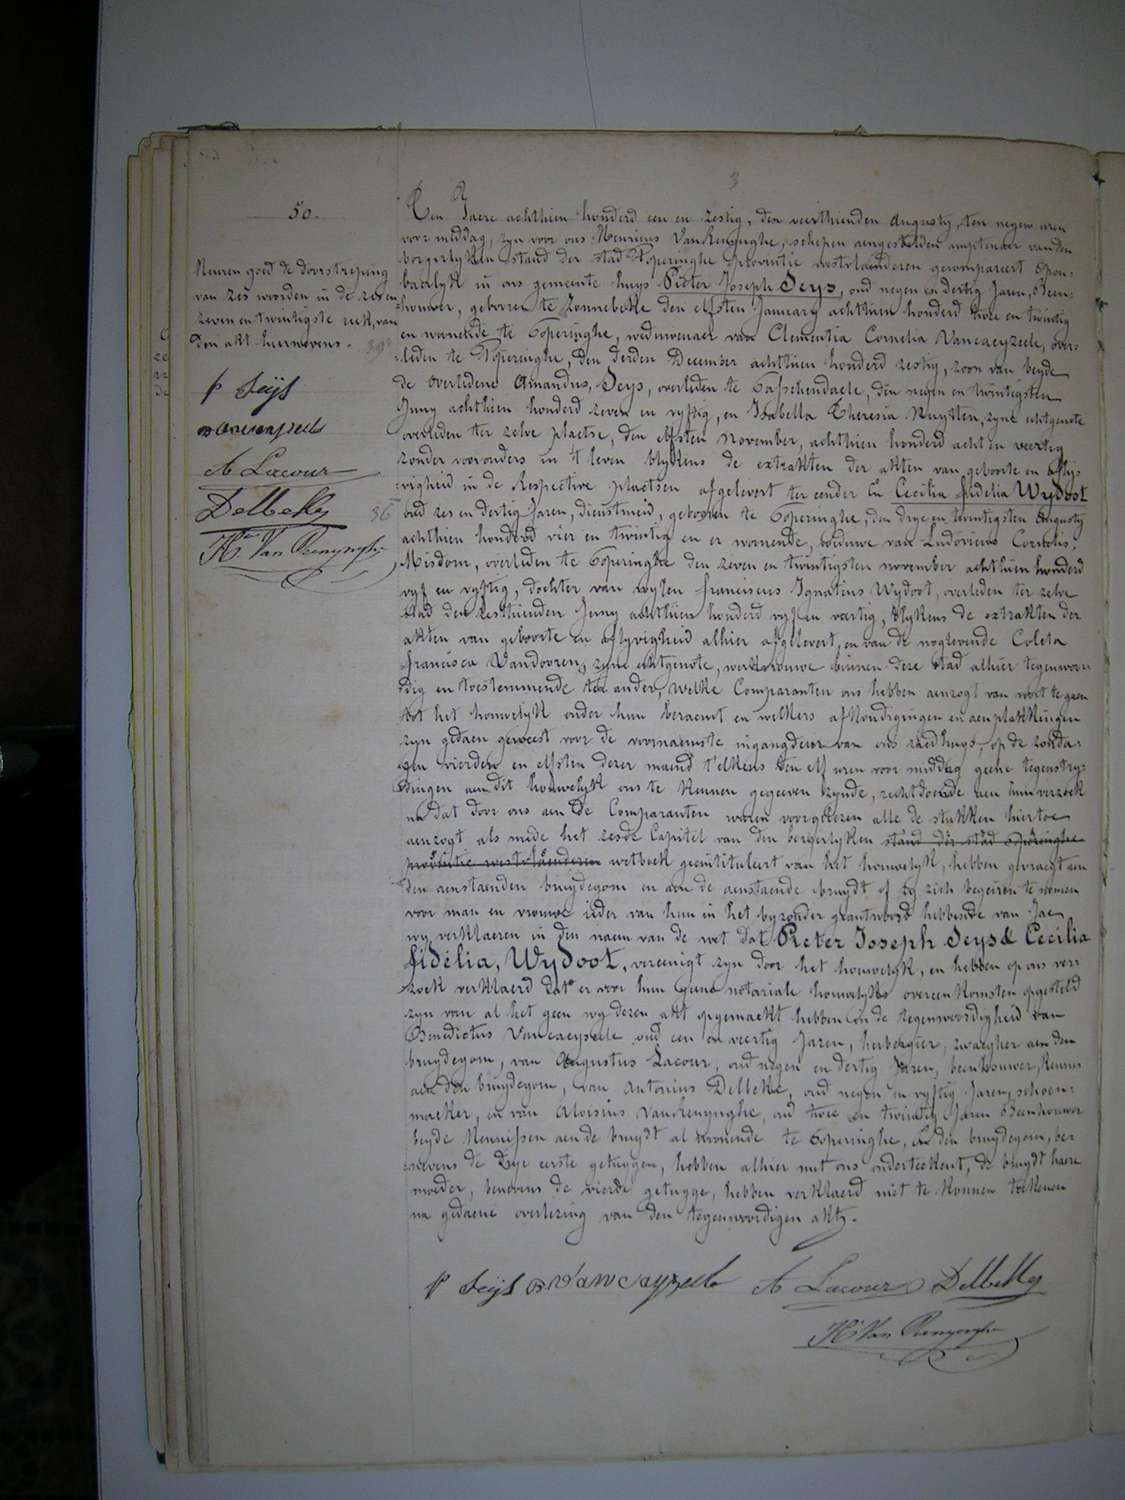 3
50.
Ten Jaere achthien honderd een en zestig, den veerthienden Augusty, ten negen uren
voor middag, zyn voor ons Henricus Vanrenynghe, schepen aengestelden amptenaer van den
borgerlyken stand der stad Poperinghe provintie westvlaenderen gecompareert Open-
baerlyk in ons gemeente huys Pieter Joseph Seys, oud negen en dertig Jaren, Been-
houwer, geboren te Zonnebeke den elfsten January achthien honderd twee en twintig
en woonende te Poperinghe, weduwenaer van Clementia Cornelia Vancaeyzeele, over-
leden te Poperinghe, den derden December achthien honderd zestig, zoon van beyde
de overledene Amandus, Seys, overleden te Passchendaele, den negen en twintigsten
Juny achthien honderd zeven en vyftig, en Isabella Theresia Nuytten, zyne echtgenote
overleden ter zelve plaetse, den elfsten November, achthien honderd acht en veertig
zonder voorouders in 't leven blykens de extrakten der akten van geboorte en afly-
vigheid in de Respective plaetsen afgelevert ter eender En Cecilia fidelia Wydoot
oud zes en dertig Jaren, dienstmeid, geboren te Poperinghe, den drye en twintigsten Augusty
achthien honderd vier en twintig en er woonende, weduwe van Ludovicus Cornelis,
Misdom, overleden te Poperinghe den zeven en twintigsten november achthien honderd
vyf en vyftig, dochter van wylen franciscus Ignatius Wydoot, overleden ter zelve
stad den zesthienden Juny achthien honderd vyf en veertig, blykens de extrakten der
akten van geboorte en aflyvigheid alhier afgelevert, en van de noglevende Coleta
francisca Vandooren, zyne echtgenote, werkvrouwe binnen deze stad alhier tegenwoor-
dig en toestemmende ter ander, welke Comparanten ons hebben aenzogt van voort te gaen
tot het houwelyk onder hun beraemt en welkers afkondigingen en aenplakkingen
zyn gedaen geweest voor de voornaemste ingangdeur van ons raedhuys, op de zonda-
gen vierden en elfsten dezer maend t'elkens ten elf uren voor middag geene tegenstry-
dingen aen dit houwelyk ons te kennen gegeeven zynde, rechtdoende aen hun verzoek
na dat door ons aen de Comparanten waren voorgelezen alle de stukken hiertoe
aenzogt als mede het zesde Capitel van den borgerlyken stand der stad Poperinghe
provintie westvlaenderen wetboek geintituleert van het houwelyk, hebben gevraegt aen
den aenstaenden bruydegom en aen de aenstaende bruydt of zy zich begeiren te nemen
voor man en vrouwe ieder van hun in het byzonder geantwoord hebbende van Jae
wy verklaeren in den naem van de wet dat Pieter Joseph Seys & Cecilia
fidélia, Wydoot, vereenigt zyn door het houwelyk, en hebben op ons ver-
zoek verklaerd dat er voor hun geene notariale houwelyks overeenkomsten opgesteld
zyn van al het geen wy dezen akt opgemaekt hebben in de tegenwoordigheid van
Benedictus Vancaeyzeele oud een en veertig Jaren, herbergier, zwaegher aen den
bruydegom, van Augustus Lacour, oud negen en dertig Jaren, beenhouwer, Kennis
aen den bruydegom, van Antonius Delbeke, oud negen en vyftig Jaren, schoen-
maeker, en van Aloisius Vanrenynghe, oud twee en twintig Jaren Beenhouwer
beyde Kennissen aen de bruydt al woonende te Poperinghe, En den bruydegom, be-
nevens de drye eerste getuygen, hebben alhier met ons onderteekent, de bruydt haere
moeder, benevens de vierde getuyge, hebben verklaerd niet te konnen teekenen
na gedaene overlezing van den tegenwoordigen akt.
P Seys B Vancayzeele A Lacour Delbeke
H. Van Renynghe
Keuren goed de doorstreping
van zes woorden in de zeven
zeven en twintigste rek, van
den akt hiernevens.
P Seys
B Vancayzeele
A Lacour
Delbeke
H. Van Renynghe